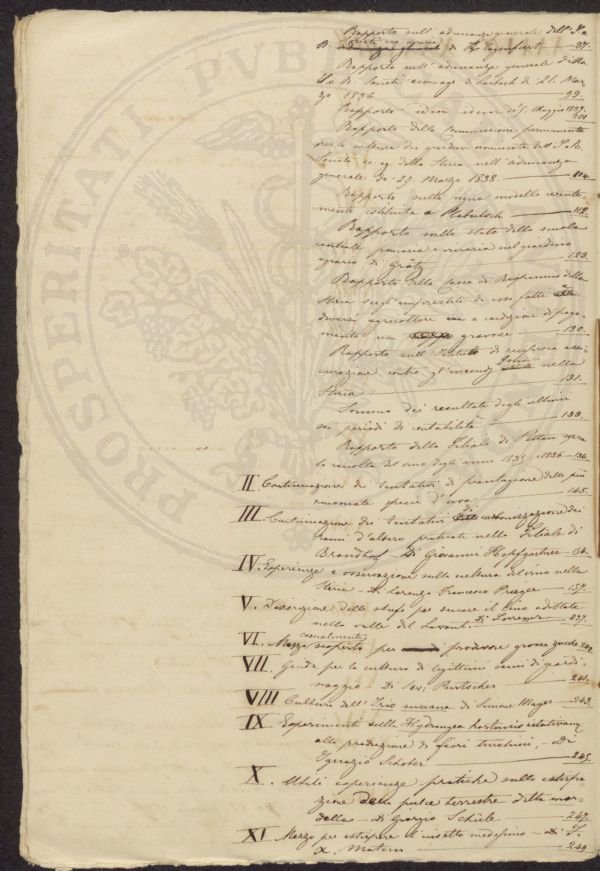 Rapporto sull'adunanza generale dell'I. e
R. Società eco. agraria di Klagenfurt — 87.
Rapporto sull'adunanza generale della
I. e R. Società econ. ag. di Laibach di 21. Mar
zo 1836 — 99.
Rapporto idem idem di Maggio 1837.
101
Rapporto della Commissione permanente
per la cultura dei giardini nominata dall'I. e R.
Società ec. ag. della Stiria nell'adunanza
generale di 29 Marzo 1838. — 104.
Rapporto sulla vigna modello recente-
mente istituita a — 112.
Rapporto sullo stato della scuola
centrale pomaria e vivaria nel giardino
agrario di Grätz — 123.
Rapporto della Cassa di Risparmio della
Stiria sugl'imprestiti da essa fatti a
diversi agricoltori a condizioni di paga-
mento non gravose — 130.
Rapporto sull'Istituto di reciproca assi-
curazione contro gl'incendj nella
Stiria — 131.
Somma dei resultati degli ultimi
sei periodi di contabilità — 133.
Rapporto della Filiale di Pettau sopra
la raccolta del vino degli anni 1835. 1836. — 136.
II. Continuazione dei tentativi di piantagione delle più
rinomate specie d'uva — 145.
III. Continuazione dei tentativi di carbonizzazione dei
rami d'albero praticate nella Filiale di
Brandhof — Di Giovanni Hopfgartner — 154.
IV. Esperienze e osservazione sulla cultura del vino nella
Stiria — Di Lorenzo Francesco Prager — 157.
V. Descrizione delle stufe per seccare il lino adottate
nella valle del Lavant. Di Lorenzo — 237.
VI. Mezzo casualmente scoperto per produrre grosse zucche 240.
VII. Guida per la cultura di legittimi semi di giardi-
naggio — Di Sev: Purtscher — 241.
VIII Cultura dell'Iris susiana di Simone Mayer — 243.
IX Esperimenti sulla Hydrangea hortensis relativam.
alla produzione di fiori turchini, — Di
Ignazio Schober — 245.
X. Utili esperienze pratiche sulla estirpa-
zione della pulce terrestre detta mor-
della — di Giorgio Schüle — 247.
XI Mezzo per estirpare il insetto medesimo — Di F.
X. Matern — 249.
PROSPERITATI PUBLICAE